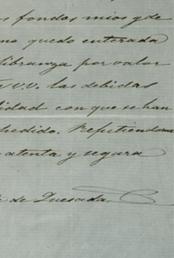 s fondos mios y de
me quedo enterada
libranza por valor
V.V. las debidas
lidad con que se han
cedido. Repitiendome
atenta y segura
de Quesada